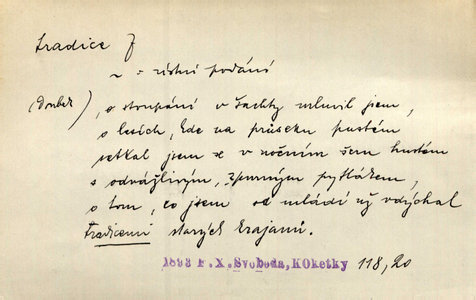 tradice f
~ = ústní podání
(Doubek), o stoupání v šachty mluvil jsem,
o lesích, kde na průseku pustém
setkal jsem se v nočním šeru hustém
s odvážlivým, zpurným pytlákem,
o tom, co jsem od mládí už vdýchal
tradicemi starých krajanů.
1893 F. X. Svoboda, KOketky 118,20